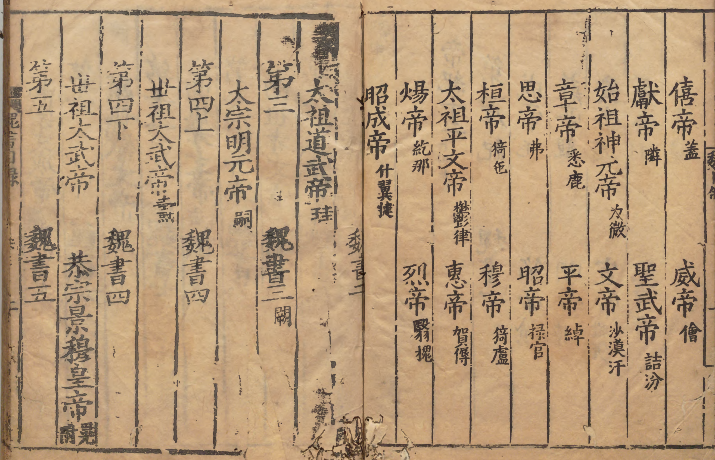 僖帝蓋 威帝儈
獻帝隣 聖武帝詰汾
始祖神元帝力微 文帝沙漠汗
章帝悉鹿 平帝綽
思帝弗 昭帝禄官
桓帝猗㐌 穆帝猗盧
太祖平文帝鬱律 惠帝賀傉
煬帝紇那 烈帝翳槐
昭成帝什翼犍
魏書二
太祖道武帝珪
第三 魏書三闕
太宗明元帝嗣
第四上 魏書四
丗祖太武帝燾
第四下 魏書四
丗祖太武帝 恭宗景穆皇帝晃
第五 魏書五